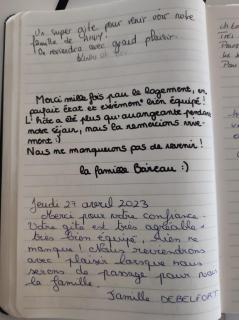 Un super gîte pour venir voir notre
famille de
On reviendra avec grand plaisir.
Merci mille fois pour le logement, en
parfait état et extrêmement bien équipé!
L'hôte a été plus qu'arrangeante pendant
notre séjour, nous la remercions vive-
ment!
Nous ne manquerons pas de revenir!
la famille Bareau :)
Jeudi 27 avril 2023
Merci pour votre confiance.
Votre gîte est très agréable +
très bien équipé, rien ne
manque! Nous reviendrons
avec plaisir lorsque nous
serons de passage pour voir
la famille.
Famille DEBELFORT